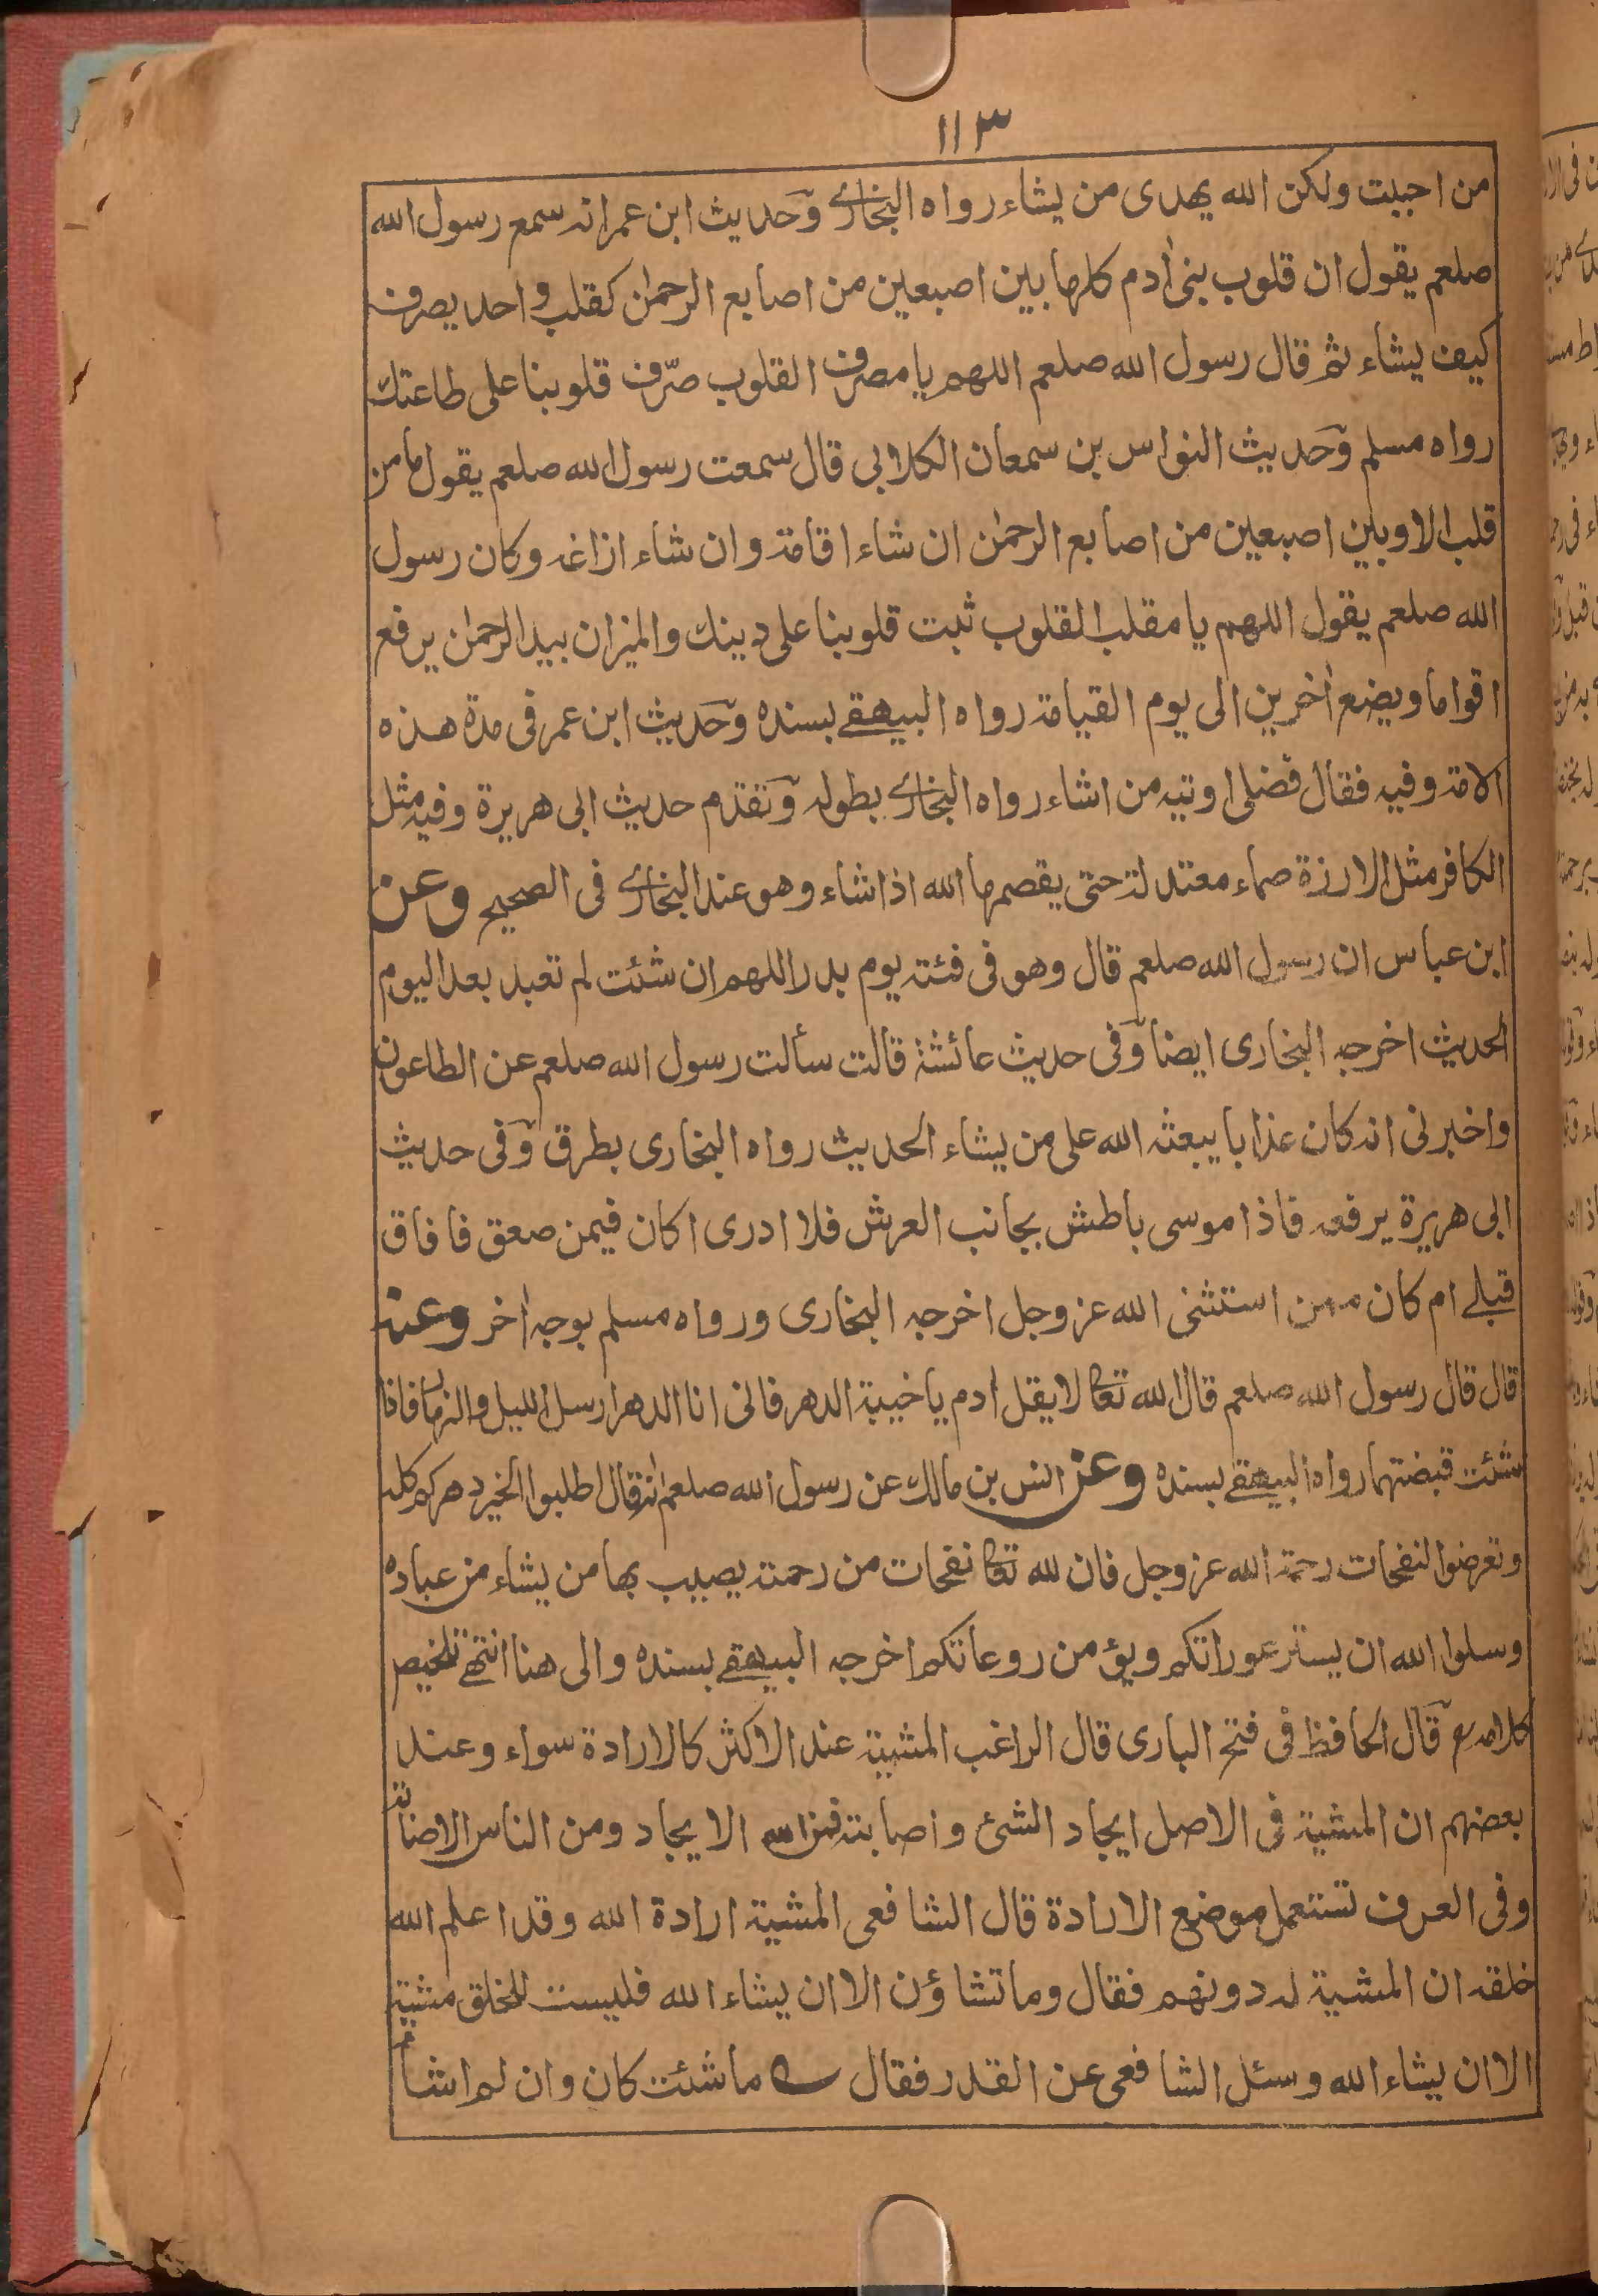 ١١٣
من احببت ولكن الله يهدى من يشاء رواه البخارى وحديث ابن عمر انه سمع رسول الله
صلعم يقول ان قلوب بنى أدم كلها بين اصبعين من اصابع الرحمن كقلب واحد يصرف
كيف يشاء ثم قال رسول الله صلعم اللهم يا مصرف القلوب صرّف قلوبنا على طاعتك
رواه مسلم وحديث النواس بن سمعان الكلابى قال سمعت رسول الله صلعم يقول ما من
قلب الا وبين اصبعين من اصابع الرحمن ان شاء اقامه وان شاء ازاغه وكان رسول
الله صلعم يقول اللهم يا مقلب القلوب ثبت قلوبنا على دينك والميزان بيد الرحمن يرفع
اقواما ويضع أخرين الى يوم القيامة رواه البيهقے بسنده وحديث ابن عمر فى مدة هذه
الامة وفيه فقال فضلى اوتيه من اشاء رواه البخارى بطوله وتقدم حديث ابى هريرة وفيه مثل
الكافر مثل الارزة صماء معتدلة حتى يقصمها الله اذا شاء وهو عند البخارى فى الصحيح وعن
ابن عباس ان رسول الله صلعم قال وهو فى فئة يوم بدر اللهم ان شئت لم تعبد بعد اليوم
الحديث اخرجه البخارى ايضا وفى حديث عائشة قالت سألت رسول الله صلعم عن الطاعون
واخبرنى انه كان عذابا يبعثه الله على من يشاء الحديث رواه البخارى بطرق وفى حديث
ابى هريرة يرفعه فاذا موسى باطش بجانب العرش فلا ادرى اكان فيمن صعق فافاق
قبلے ام كان ممن استثنى الله عز وجل اخرجه البخارى ورواه مسلم بوجه أخر وعنه
قال قال رسول الله صلعم قال الله تعا لا يقل أدم يا خيبة الدهر فانى انا الدهر ارسل الليل والنهار فاذا
شئت قبضتهما رواه البيهقے بسنده وعن انس بن مالك عن رسول الله صلعم انه قال اطلبوا الخير دهركم كله
وتعرضوا لنفحات رحمة الله عز وجل فان لله تعا نفحات من رحمته يصيب بها من يشاء من عباده
وسلوا الله ان يستر عوراتكم ويؤمن روعاتكم اخرجه البيهقے بسنده والى هنا انتهے تلخيص
كلامه رح قال الحافظ فى فتح البارى قال الراغب المشية عند الاكثر كالارادة سواء وعند
بعضهم ان المشية فى الاصل ايجاد الشئ واصابته فمن الله الايجاد ومن الناس الاصابة
وفى العرف تستعمل موضع الارادة قال الشافعى المشية ارادة الله وقد اعلم الله
خلقه ان المشية له دونهم فقال وما تشاؤن الا ان يشاء الله فليست للخلق مشية
الا ان يشاء الله وسئل الشافعى عن القدر فقال ؎ ما شئت كان وان لم اشأ